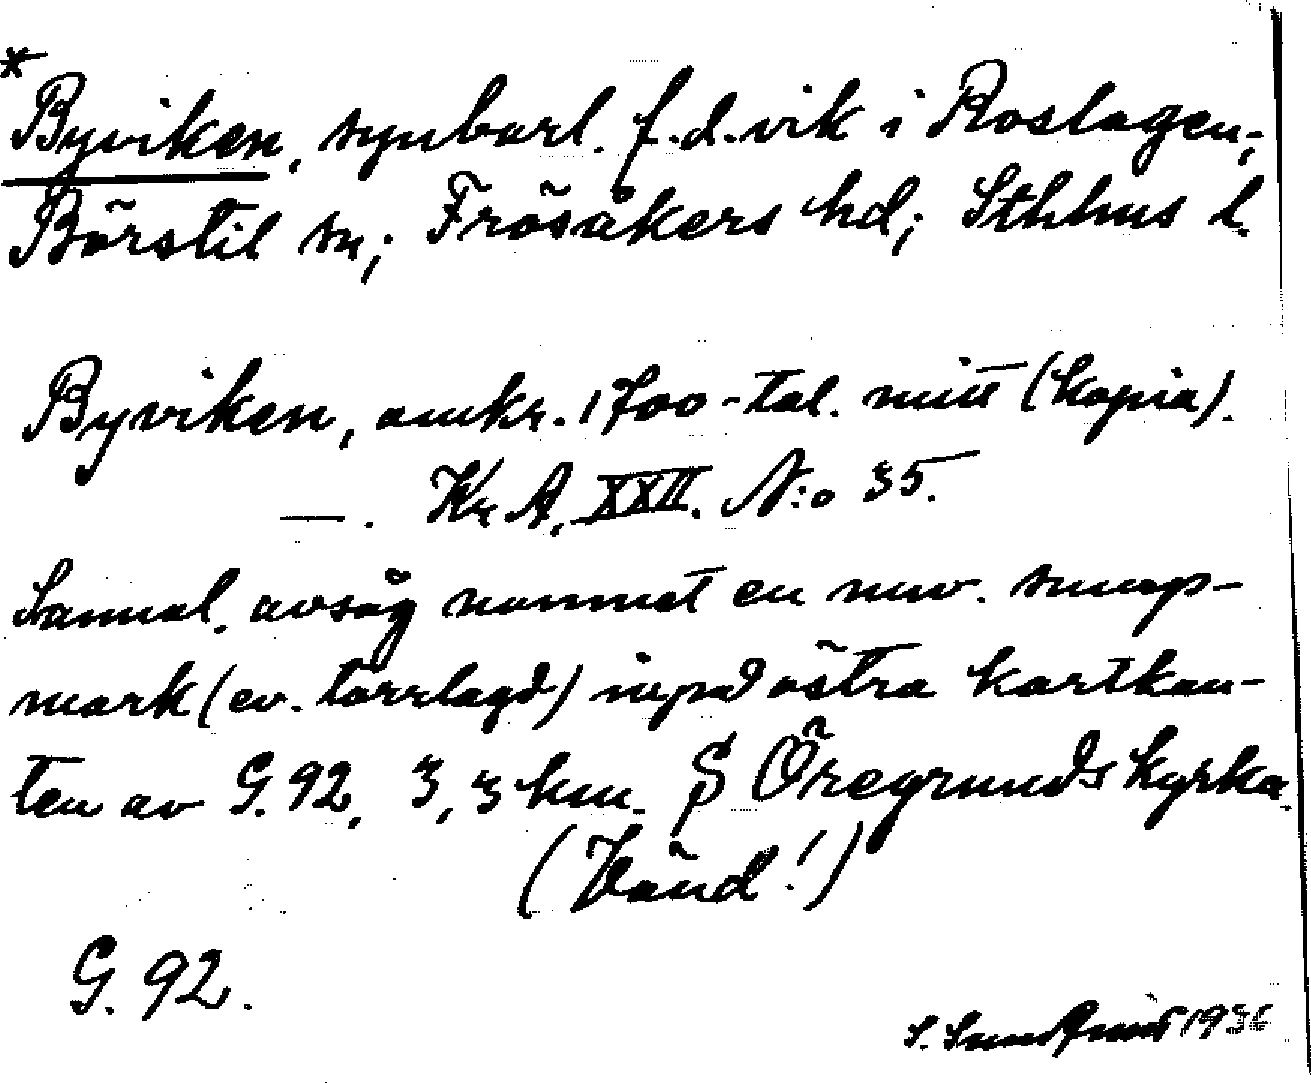 *
Byviken, synbarl. f.d. vik i Roslagen;
Börstil sn; Frösåkers hd; Sthlms l.
Byviken, omkr. 1700-tal. mitt (kopia).
—. Kr. A. XXII. N:o 35.
Sannol. avsåg namnet en nuv. sump-
mark (ev. torrlagd) inpå östra kartkan-
ten av G. 92, 3,3 km. S Öregrunds kyrka.
(Vänd!)
G. 92.
S. 1936